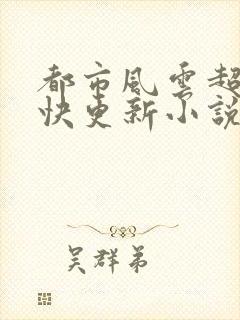 都市風雲超
快更新小說
吳群弟